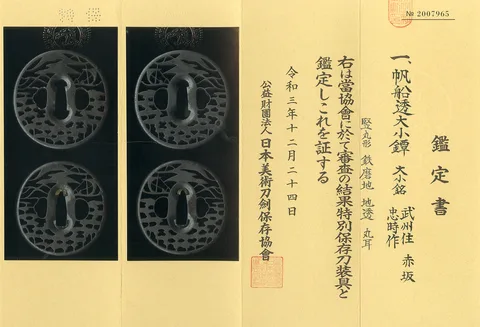 № 2007965
鑑定書
一、帆船透大小鐔 大小銘 武州住 赤坂
忠時作
竪丸形 鉄磨地 地透 丸耳
右は當協會に於て審査の結果特別保存刀装具と
鑑定しこれを証する
令和三年十二月二十四日
公益財團法人 日本美術刀劍保存協會